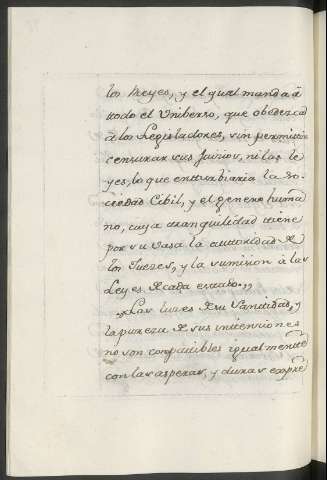 los Reyes, y el qual manda à
todo el Uniberso, que obedezca
à los Legisladores, sin permitir
censurar sus Juicios, ni las le
yes, lo que enturbiaria la So-
ciedad Cibil, y el genero huma
no, cuya tranquilidad tiene
por su vasa la autoridad de
los Jueces, y la sumision à las
Leyes de cada estado.,,
,,Las luces de su Santidad, y
la pureza de sus intenciones
no son compatibles igualmente
con las asperas, y duras expre